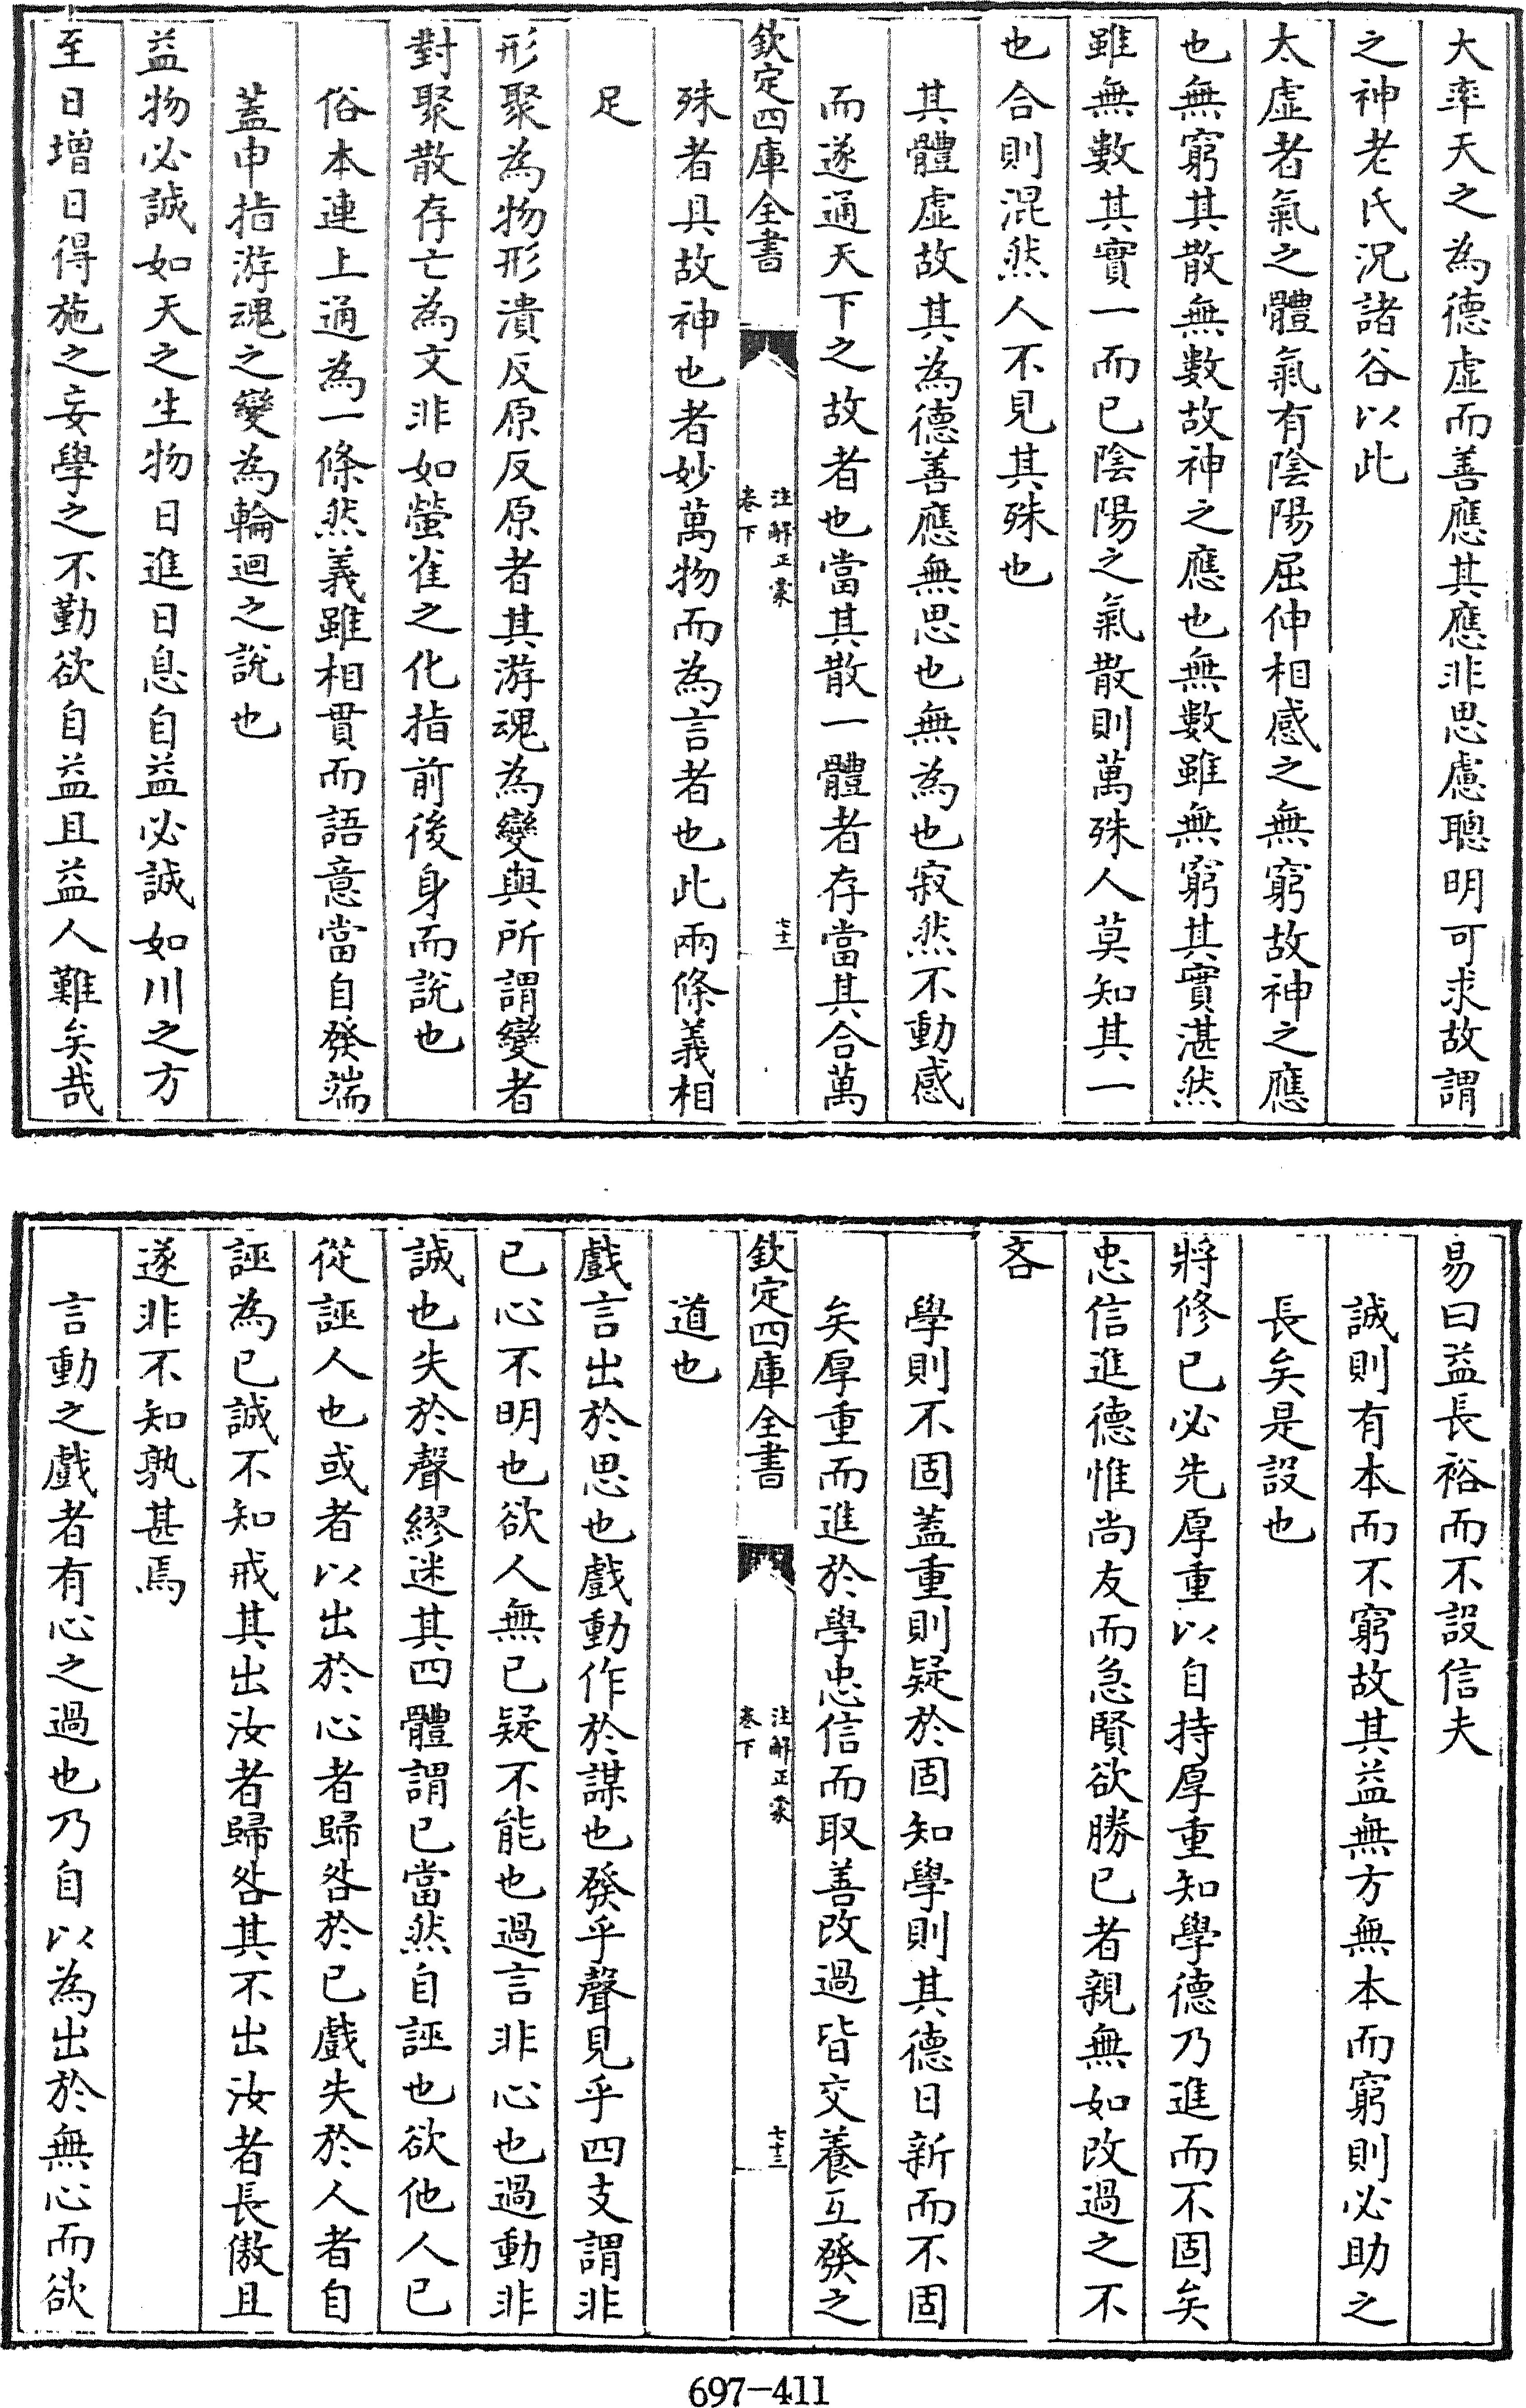 大率天之為德虛而善應其應非思慮聰明可求故謂
之神老氏況諸谷以此
太虛者氣之體氣有陰陽屈伸相感之無窮故神之應
也無窮其散無數故神之應也無數雖無窮其實湛然
雖無數其實一而已陰陽之氣散則萬殊人莫知其一
也合則混然人不見其殊也
其體虛故其為德善應無思也無為也寂然不動感
而遂通天下之故者也當其散一體者存當其合萬
欽定四庫全書
注解正蒙
卷下
七十二
殊者具故神也者妙萬物而為言者也此兩條義相
足
形聚為物形潰反原反原者其游魂為變與所謂變者
對聚散存亡為文非如螢雀之化指前後身而說也
俗本連上通為一條然義雖相貫而語意當自發端
蓋申指游魂之變為輪迴之說也
益物必誠如天之生物日進日息自益必誠如川之方
至日增日得施之妄學之不勤欲自益且益人難矣哉
易曰益長裕而不設信夫
誠則有本而不窮故其益無方無本而窮則必助之
長矣是設也
將修已必先厚重以自持厚重知學德乃進而不固矣
忠信進德惟尚友而急賢欲勝已者親無如改過之不
吝
學則不固蓋重則疑於固知學則其德日新而不固
矣厚重而進於學忠信而取善改過皆交養互發之
欽定四庫全書
注解正蒙
卷下
七十三
道也
戲言出於思也戲動作於謀也發乎聲見乎四支謂非
已心不明也欲人無已疑不能也過言非心也過動非
誠也失於聲繆迷其四體謂已當然自誣也欲他人已
從誣人也或者以出於心者歸咎於已戲失於人者自
誣為已誠不知戒其出汝者歸咎其不出汝者長傲且
遂非不知孰甚焉
言動之戲者有心之過也乃自以為出於無心而欲
697-411